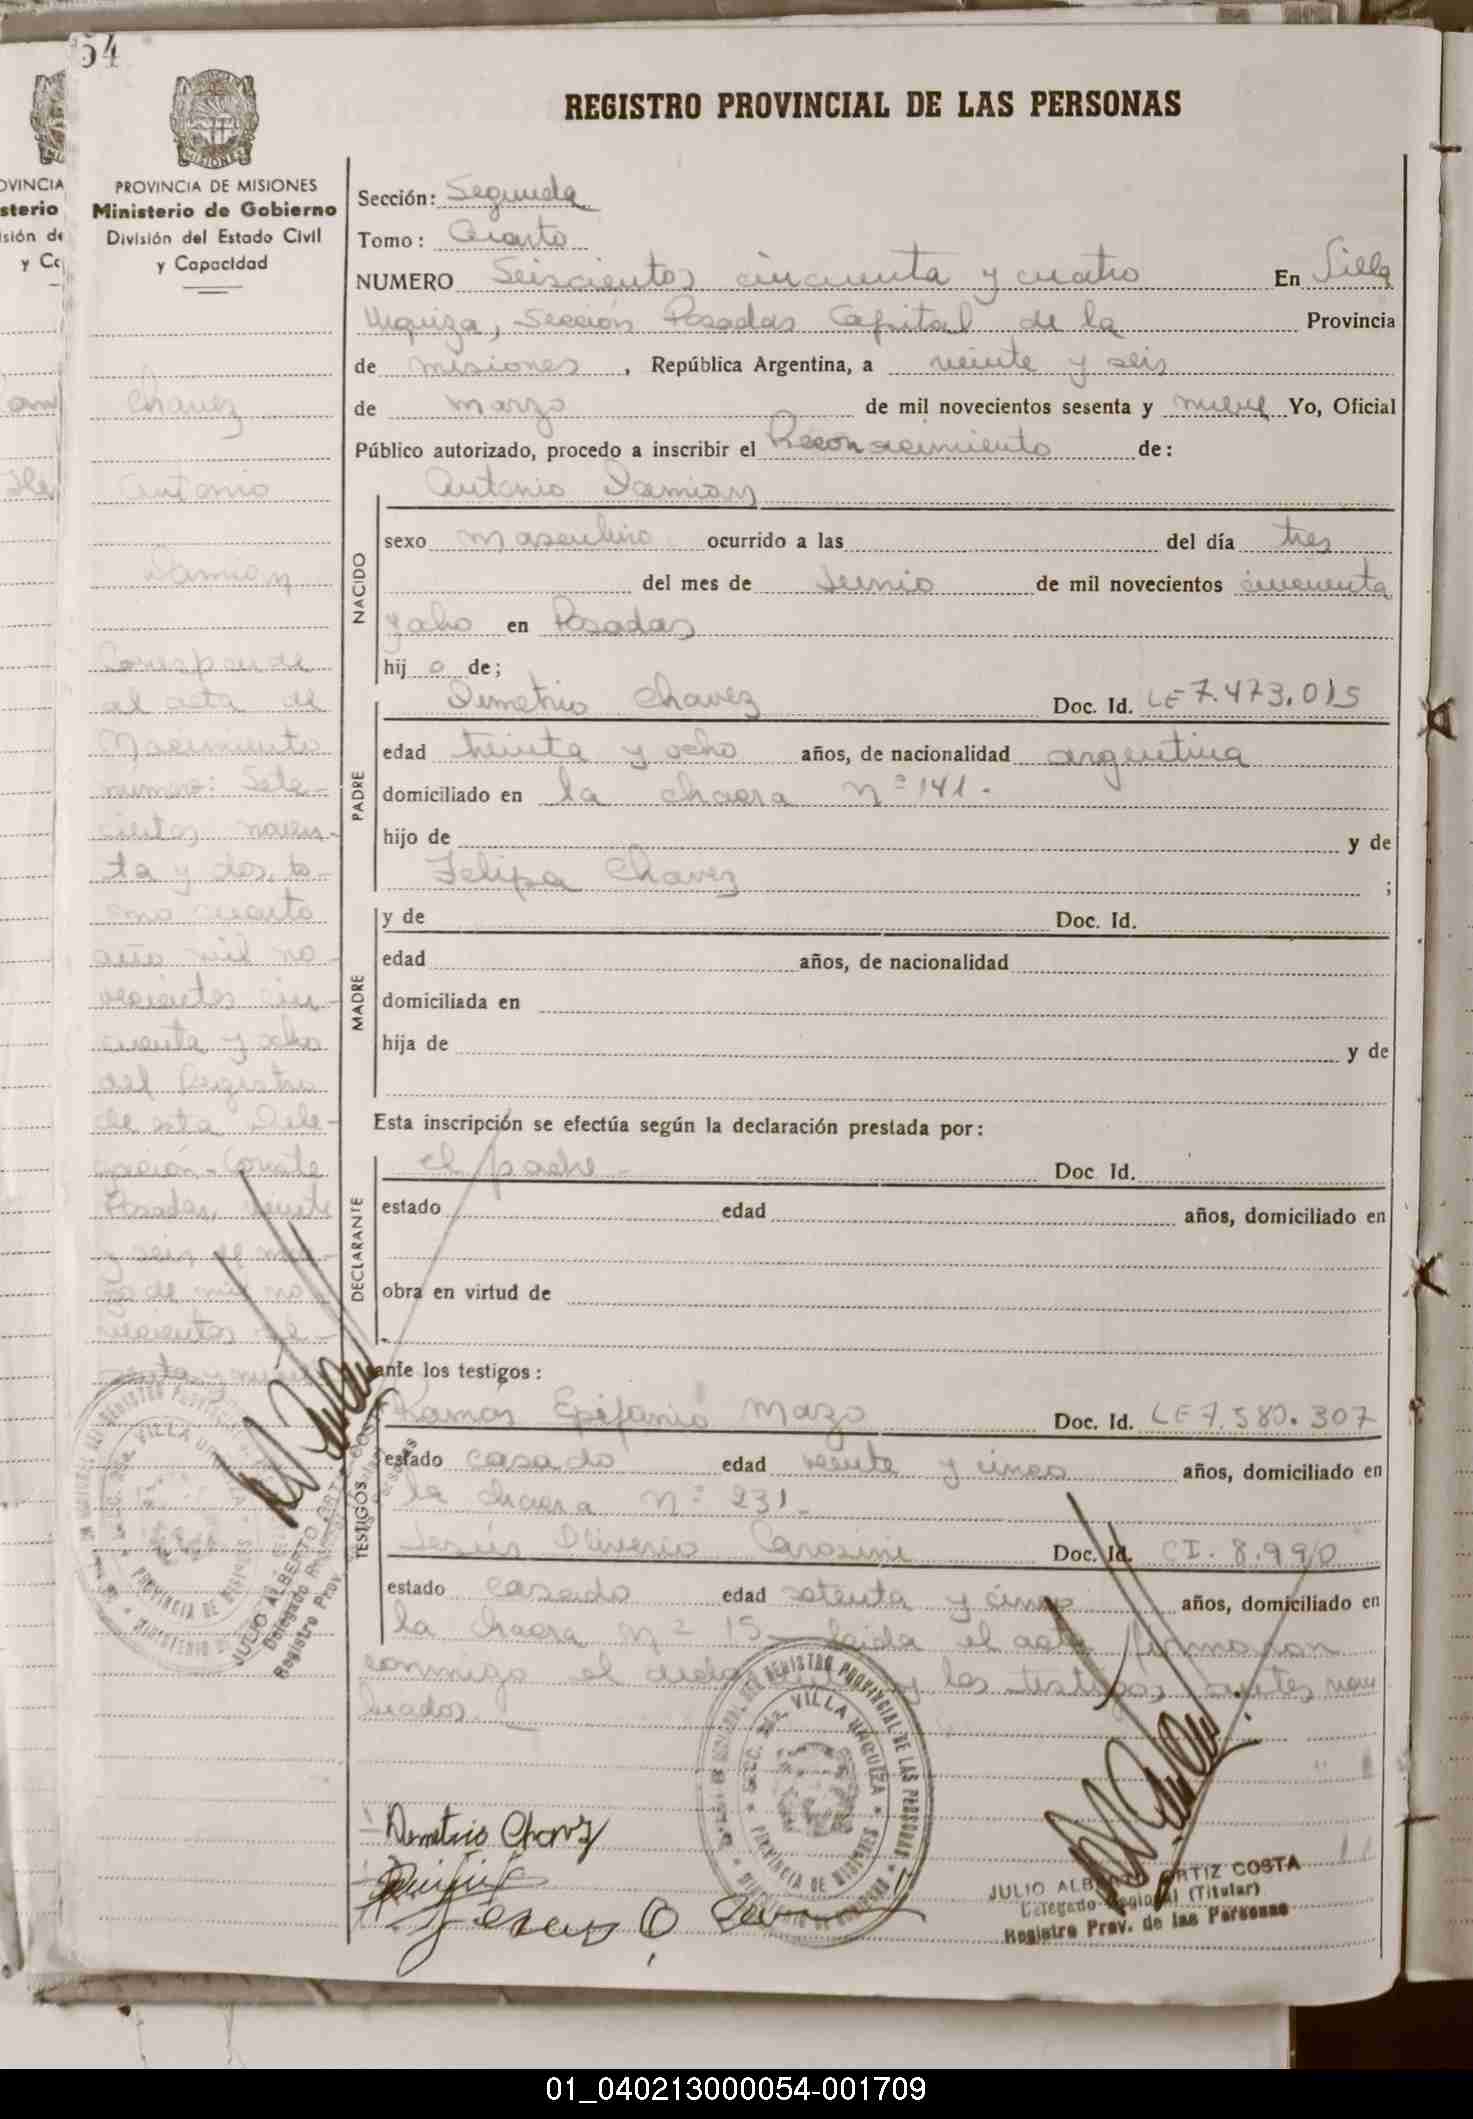 54
REGISTRO PROVINCIAL DE LAS PERSONAS
PROVINCIA DE MISIONES
Ministerio de Gobierno
División del Estado Civil
y Capacidad
Chavez
Antonio
Damian
Corresponde
al acta de
Nacimiento
número: Sete-
cientos noven-
ta y dos, to-
mo cuarto
año mil no-
vecientos cin-
cuenta y ocho
del Registro
de esta Dele-
gación. Conste
Posadas, veinte
y seis de mar-
zo de mil no-
vecientos se-
senta y nueve
Sección: Segunda
Tomo: Cuarto
NUMERO Seiscientos cincuenta y cuatro En Villa
Urquiza, Sección Posadas Capital de la Provincia
de Misiones, República Argentina, a veinte y seis
de marzo de mil novecientos sesenta y nueve Yo, Oficial
Público autorizado, procedo a inscribir el Reconocimiento de:
Antonio Damian
NACIDO
sexo masculino ocurrido a las del día tres
del mes de Junio de mil novecientos cincuenta
y ocho en Posadas
hij o de;
PADRE
Demetrio Chavez Doc. Id. LE 7.473.015
edad treinta y ocho años, de nacionalidad argentina
domiciliado en la chacra Nº 141.
hijo de y de
Felipa Chavez ;
MADRE
y de Doc. Id.
edad años, de nacionalidad
domiciliada en
hija de y de
Esta inscripción se efectúa según la declaración prestada por:
DECLARANTE
el padre - Doc. Id.
estado edad años, domiciliado en
obra en virtud de
ante los testigos:
TESTIGOS
Ramon Epifanio Mazo Doc. Id. LE 7.580.307
estado casado edad veinte y cinco años, domiciliado en
la chacra Nº 231.
Jesús Oliverio Doc. Id. CI. 8.990
estado casado edad setenta y cinco años, domiciliado en
la chacra Nº 15 - leida el acta firmaron
conmigo el y los testigos antes nom
brados.
Demetrio Chavez
Jesus O
SECC. 2da. VILLA URQUIZA
PROVINCIA DE MISIONES
REGISTRO PROVINCIAL DE LAS PERSONAS
JULIO ALBERTO ORTIZ COSTA
Delegado Regional (Titular)
Registro Prov. de las Personas
01_040213000054-001709